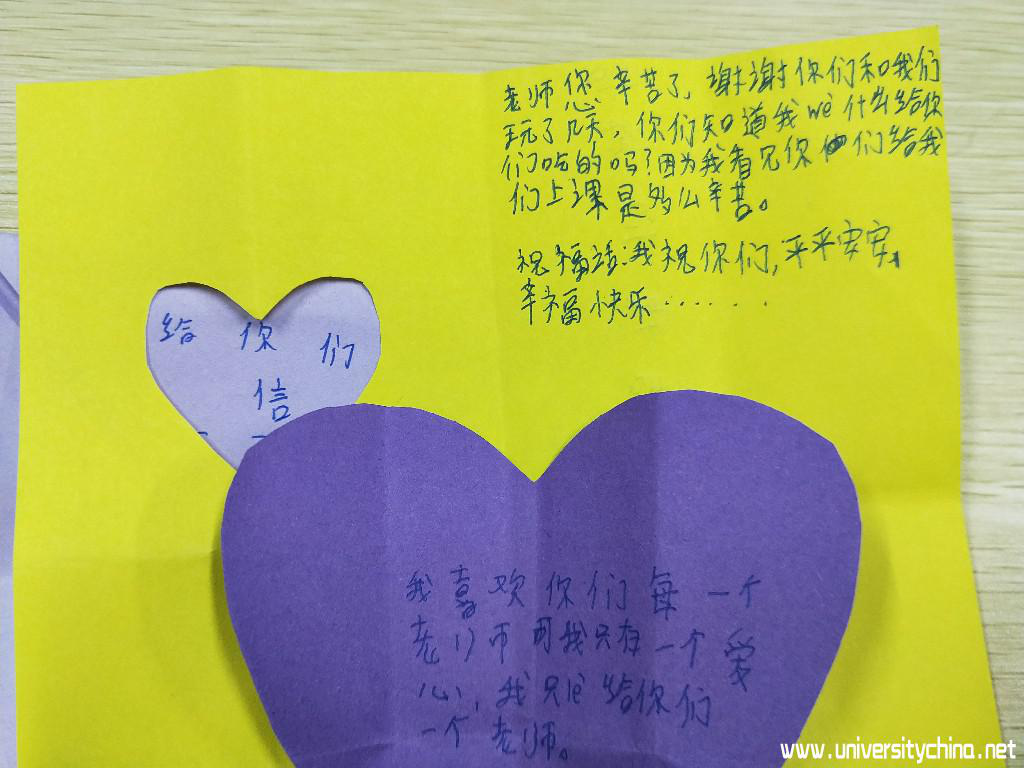 老师您辛苦了,谢谢你们和我们
玩了几天,你们知道我wèi什么给你
们吃的吗?因为我看见你们给我
们上课是多么辛苦。
祝福语:我祝你们,平平安安,
幸福快乐······
给你们
信
我喜欢你们每一个
老师可我只有一个爱
心,我只能给你们
一个老师。
www.universitychina.net